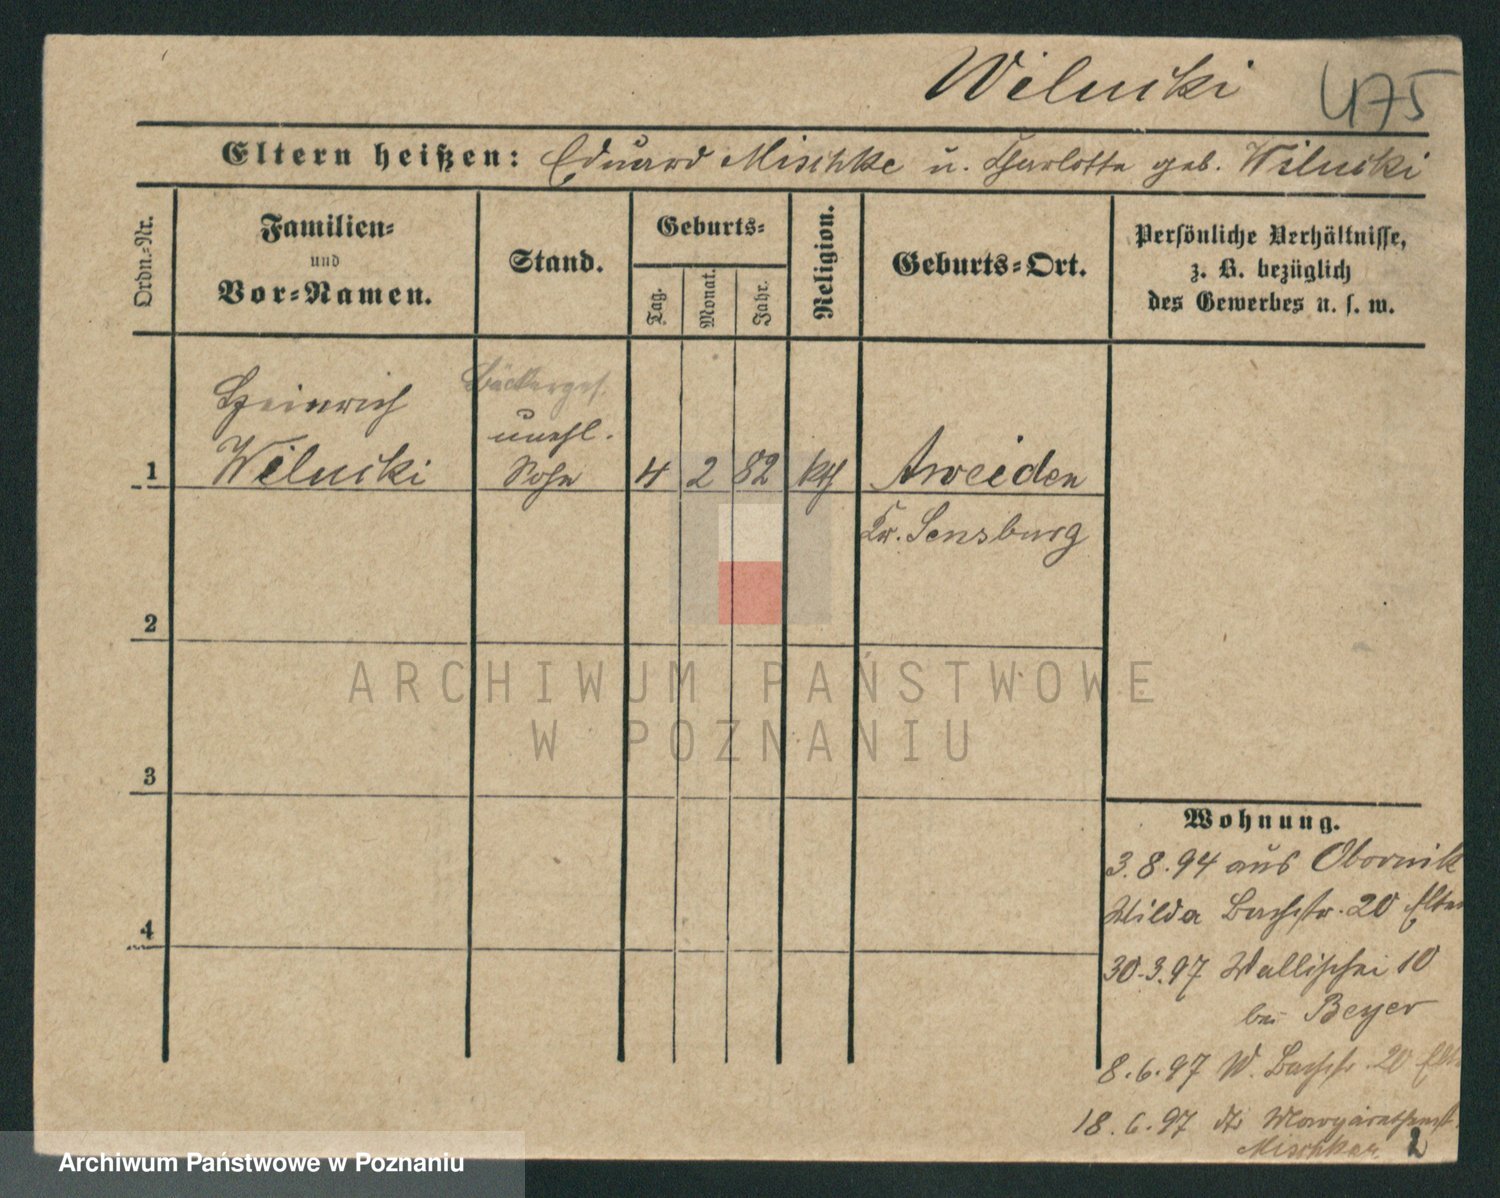 Wilnicki
475
Eltern heißen: Eduard Mischke u. Charlotte geb. Wilnicki
Ordn.-Nr.
Familien-
und
Vor-Namen.
Stand.
Geburts-
Tag.
Monat.
Jahr.
Religion.
Geburts-Ort.
Persönliche Verhältnisse,
z. B. bezüglich
des Gewerbes u. s. w.
Heinrich
Bäckerges.
unehl.
1 Wilnicki Sohn 4 2 82 kth Aweiden
Kr. Sensburg
2
3
4
ARCHIWUM PAŃSTWOWE
W POZNANIU
Wohnung.
3.8.94 aus Obornik
Wilda Bachstr. 20 Eltern
30.3.97 Wallischei 10
bei Beyer
8.6.97 W. Bachstr. 20 Elt
18.6.97 Margarethenst.
Mischke
2
Archiwum Państwowe w Poznaniu